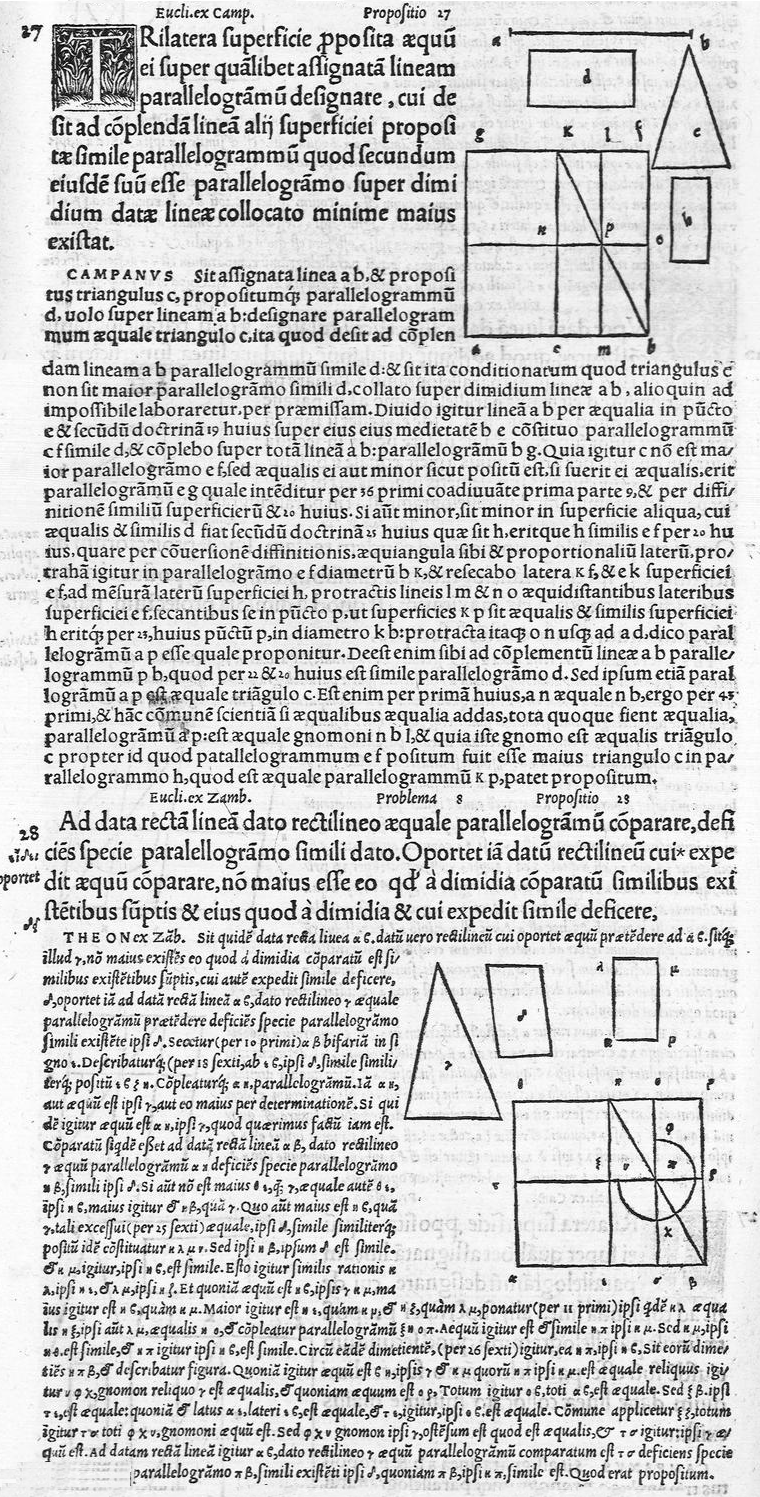 Eucli.ex Camp. Propositio 27
27
TRilatera superficie ꝓposita æquũ
ei super quãlibet assignatã lineam
parallelogrãmũ designare , cui de
sit ad cõplendã lineã alij superficiei proposi
tæ simile parallelogrammũ quod secundum
eiusdẽ suũ esse parallelogrãmo super dimi
dium datæ lineæ collocato minime maius
existat.
CAMPANVS Sit assignata linea a b, & proposi
tus triangulus c, propositumq́ꝫ parallelogrammũ
d, uolo super lineam a b: designare parallelogram
mum æquale triangulo c, ita quod desit ad cõplen
dam lineam a b parallelogrammũ simile d: & sit ita conditionatum quod triangulus c
non sit maior parallelogrãmo simili d, collato super dimidium lineæ a b , alioquin ad
impossibile laboraretur, per præmissam. Diuido igitur lineã a b per æqualia in pũcto
e & secũdũ doctrinã 19 huius super eius eius medietatẽ b e cõstituo parallelogrammũ
c f simile d, & cõplebo super totã lineã a b: parallelogrãmũ b g. Quia igitur c nõ est ma/
ior parallelogrãmo e f, sed æqualis ei aut minor sicut positũ est, si fuerit ei æqualis, erit
parallelogrãmũ e g quale intẽditur per 36 primi coadiuuãte prima parte 9, & per diffi/
nitionẽ similiũ superficierũ & 20 huius. Si aũt minor, sit minor in superficie aliqua, cui
æqualis & similis d fiat secũdũ doctrinã 25 huius quæ sit h, eritque h similis e f per 20 hu
ius, quare per cõuersionẽ diffinitionis, æquiangula sibi & proportionaliũ laterũ, pro/
trahã igitur in parallelogrãmo e f diametrũ b K, & resecabo latera K f, & e k superficiei
e f, ad mẽsurã laterũ superficiei h, protractis lineis l m & n o æquidistantibus lateribus
superficiei e f, secantibus se in pũcto p, ut superficies K p sit æqualis & similis superficiei
h eritq́ꝫ per 23, huius pũctũ p, in diametro k b: protracta itaqꝫ o n usqꝫ ad a d, dico paral
lelogrãmũ a p esse quale proponitur. Deest enim sibi ad cõplementũ lineæ a b paralle/
logrammũ p b, quod per 22 & 20 huius est simile parallelogrãmo d. Sed ipsum etiã paral
logrãmũ a p est æquale triãgulo c. Est enim per primã huius, a n æquale n b, ergo per 43
primi, & hãc cõmunẽ scientiã si æqualibus æqualia addas, tota quoque fient æqualia,
parallelogrãmũ a p: est æquale gnomoni n b l, & quia iste gnomo est æqualis triãgulo
c propter id quod patallelogrammum e f positum fuit esse maius triangulo c in pa/
rallelogrammo h, quod est æquale parallelogrammũ K p, patet propositum.
Eucli.ex Zamb. Problema 8 Propositio 28
28
Ad data rectã lineã dato rectilineo æquale parallelogrãmũ cõparare, defi
ciẽs specie paralellogrãmo simili dato. Oportet iã datũ rectilineũ cui* expe
dit æquũ cõparare, nõ maius esse eo qd' à dimidia cõparatũ similibus exi
stẽtibus sũptis & eius quod à dimidia & cui expedit simile deficere,
THEON ex Zãb. Sit quidẽ data recta liuea α ϐ. datũ uero rectilineũ cui oportet æquũ prætẽdere ad α ϐ. sitq́ꝫ
illud γ, nõ maius existẽs eo quod à dimidia cõparatũ est si/
milibus existẽtibus sũptis, cui autẽ expedit simile deficere,
δ, oportet iã ad datã rectã lineã α ϐ, dato rectilineo γ æquale
parallelogrãmũ prætẽdere deficiẽs specie parallelogrãmo
simili existẽte ipsi δ. Secetur (per 10 primi) α β bifariã in si
gno ε. Describaturq́ꝫ (per 18 sexti, ab ε ϐ, ipsi δ, simile simili/
terq́ꝫ positũ ε ϐ ζ η. Cõpleaturq́ꝫ α η, parallelogrãmũ. Iã α η,
aut æquũ est ipsi γ, aut eo maius per determinationẽ. Si qui
dẽ igitur æquũ est α η, ipsi γ, quod quærimus factũ iam est.
Cõparatũ siqdẽ esset ad datã rectã lineã α β, dato rectilineo
γ æquũ parallelogrãmũ α η deficiẽs specie parallelogrãmo
η β, simili ipsi δ. Si aũt nõ est maius θ ε, q̃ꝫ γ, æquale autẽ θ ε,
ipsi η ϐ, maius igitur & η β, quã γ. Quo aũt maius est η ϐ, quã
γ, tali excessui (per 25 sexti) æquale, ipsi δ, simile similiterq́ꝫ
positũ idẽ cõstituatur κ λ μ ν. Sed ipsi η β, ipsum δ est simile.
& κ μ, igitur, ipsi η ϐ, est simile. Esto igitur similis rationis κ
λ, ipsi η ε, & λ μ, ipsi η ζ. Et quoniã æquũ est η ϐ, ipsis γ κ μ, ma
ius igitur est η ϐ, quàm κ μ. Maior igitur est η ε, quàm κ μ, & η ξ, quàm λ μ, ponatur (per 11 primi) ipsi qdẽ κ λ æqua
lis η ξ, ipsi aũt λ μ, æqualis η ο, & cõpleatur parallelogrãmũ ξ η ο π. Aequũ igitur est & simile η π ipsi κ μ. Sed κ μ, ipsi
η ϐ. est simile, & η π igitur ipsi η ϐ, est simile. Circũ eãdẽ dimetientẽ, (per 26 sexti) igitur, ea η π, ipsi η ϐ, Sit eorũ dime/
tiẽs η π β, & describatur figura. Quoniã igitur æquũ est ϐ η, ipsis γ & κ μ quorũ η π ipsi κ μ. est æquale reliquus igi/
tur υ φ χ, gnomon reliquo γ est æqualis, & quoniam æquum est ο ρ, Totum igitur ο ϐ, toti α ϐ, est æquale. Sed ξ β. ipsi
τ ε, est æquale: quoniã & latus α ε, lateri ε ϐ, est æquale, & τ ε, igitur, ipsi ο ϐ. est æquale. Cõmune applicetur ξ ξ, totum
igitur τ σ toti φ χ υ, gnomoni æquũ est. Sed φ χ υ gnomon ipsi γ, ostẽsum est quod est æqualis, & τ σ igitur, ipsi γ æ/
quũ est. Ad datam rectã lineã igitur α ϐ, dato rectilineo γ æquũ parallelogrãmum comparatum est τ σ deficiens specie
parallelogrãmo π β, simili existẽti ipsi δ, quoniam π β, ipsi η π, simile est. Quod erat propositum.